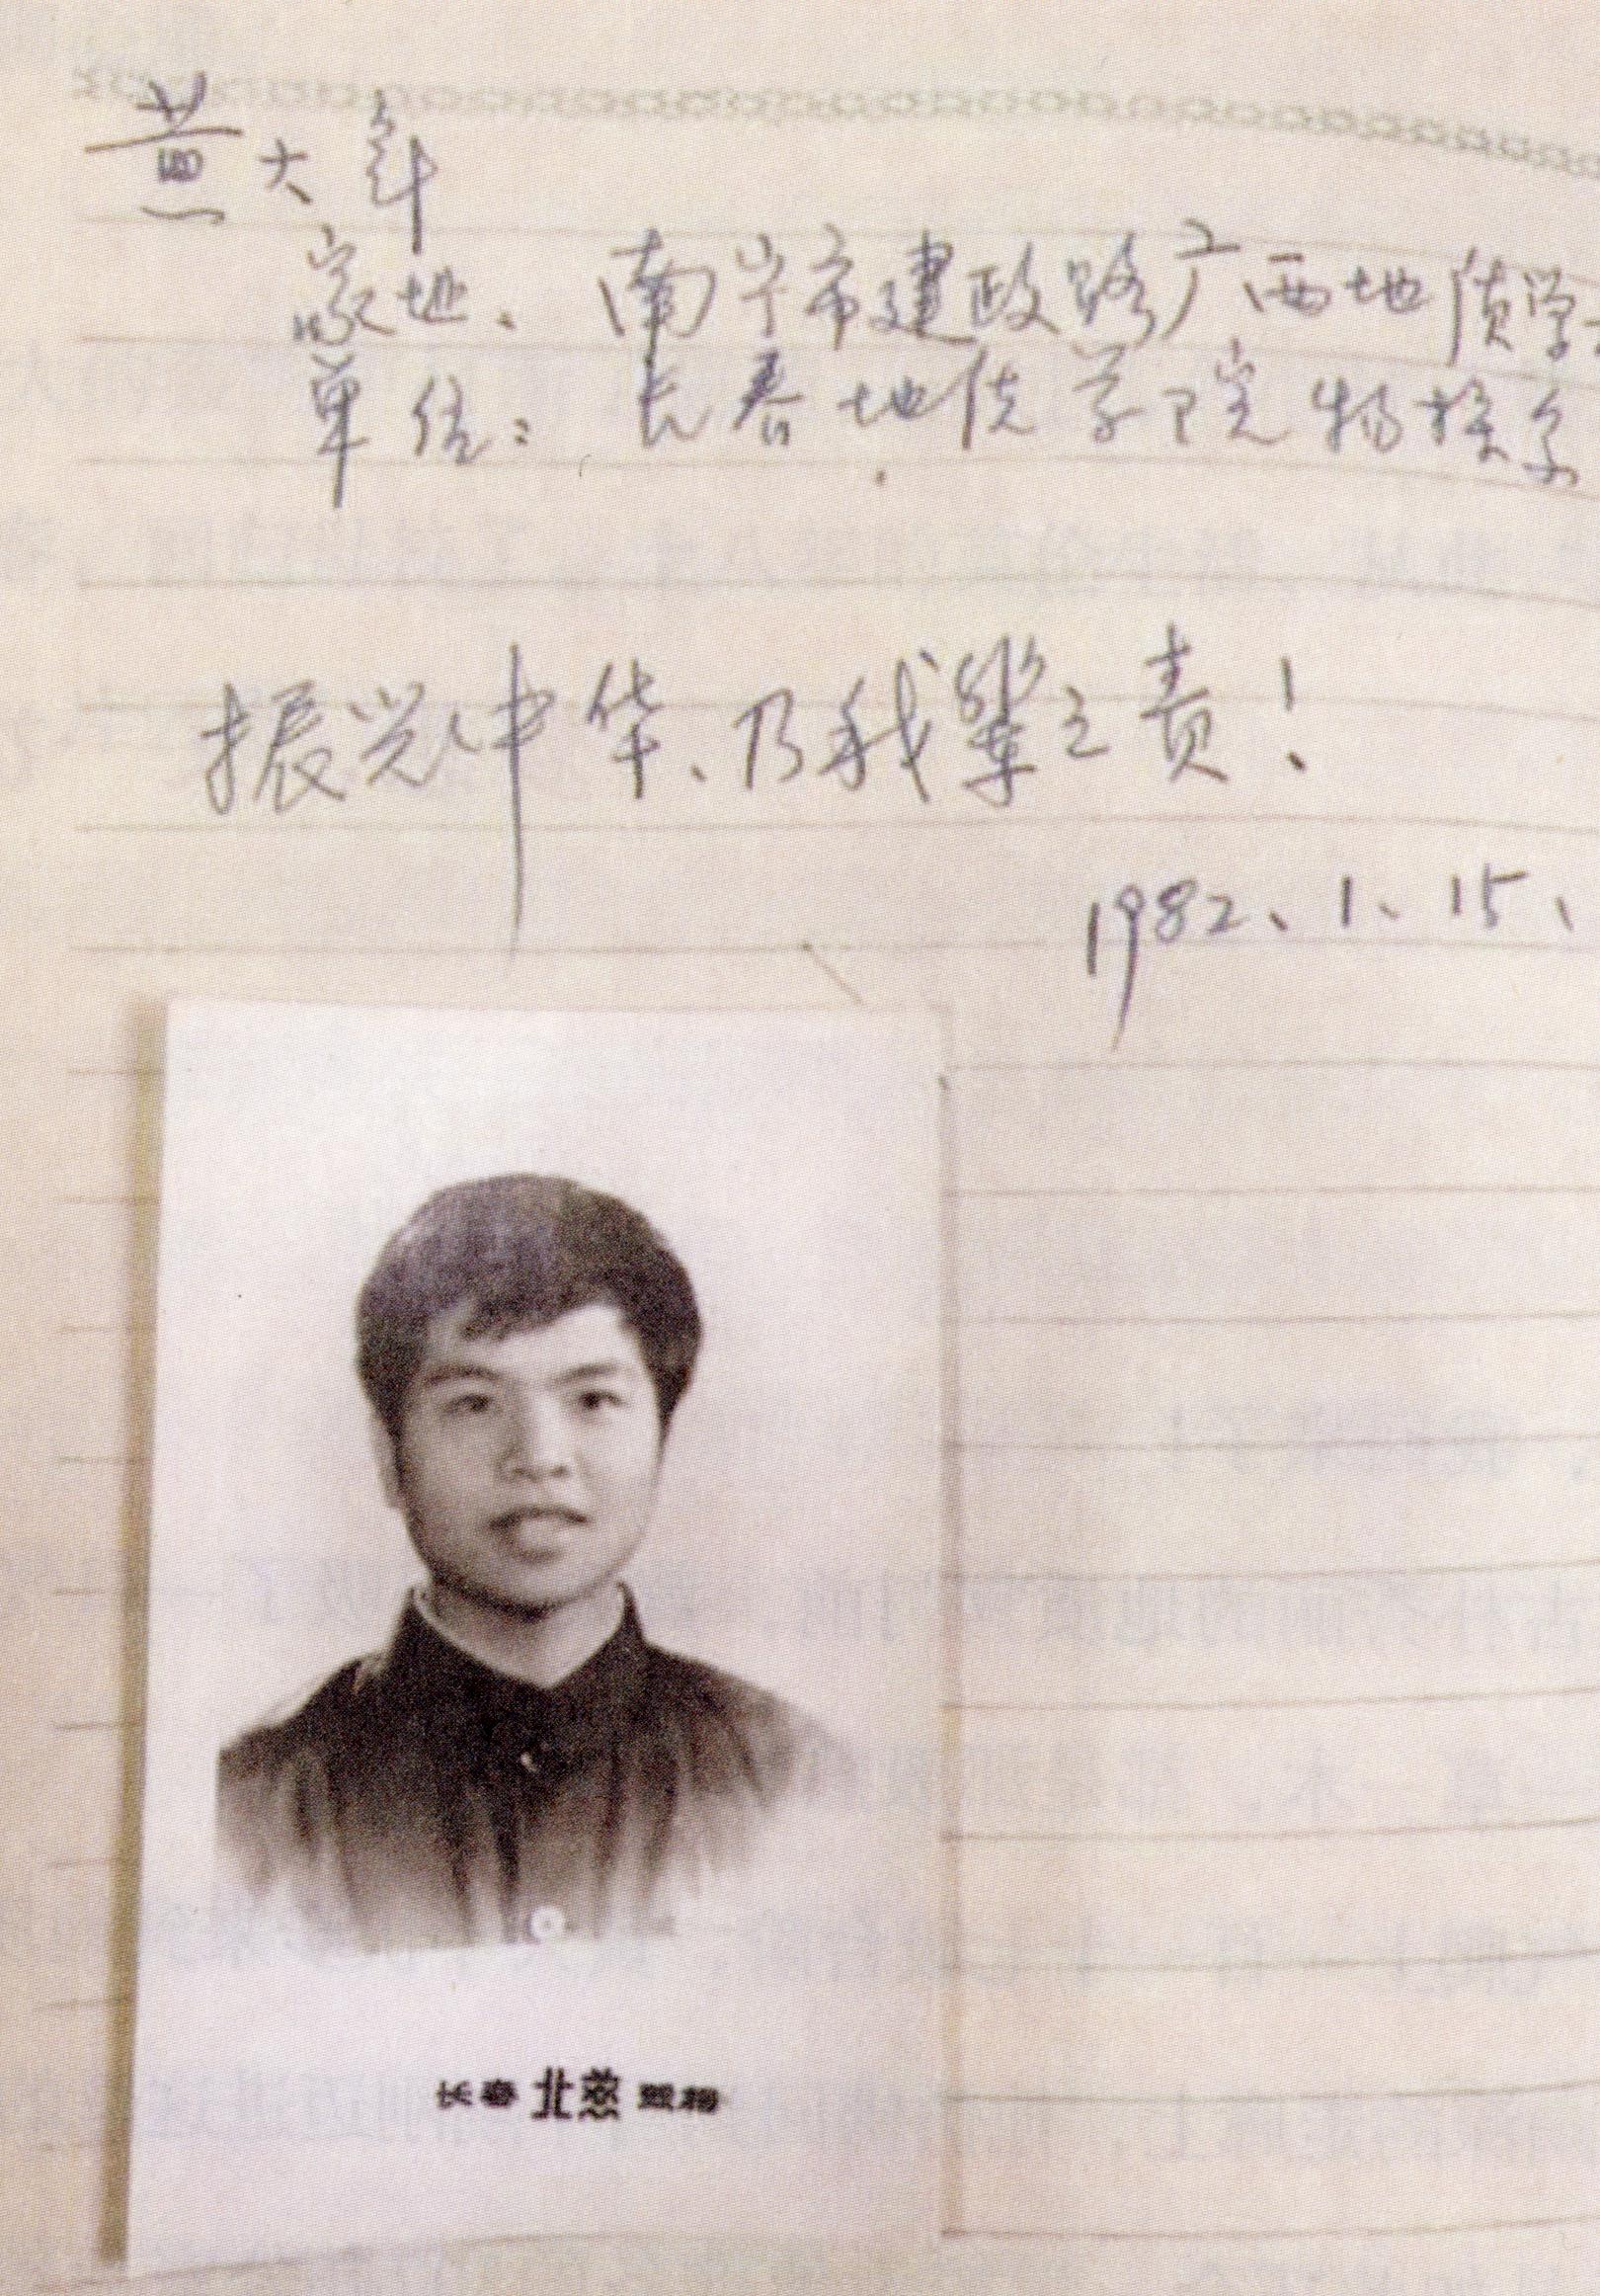 黄大年
家地、南宁市建政路广西地质学
单位：长春地质学院物探系
振兴中华、乃我辈之责！
1982、1、15、